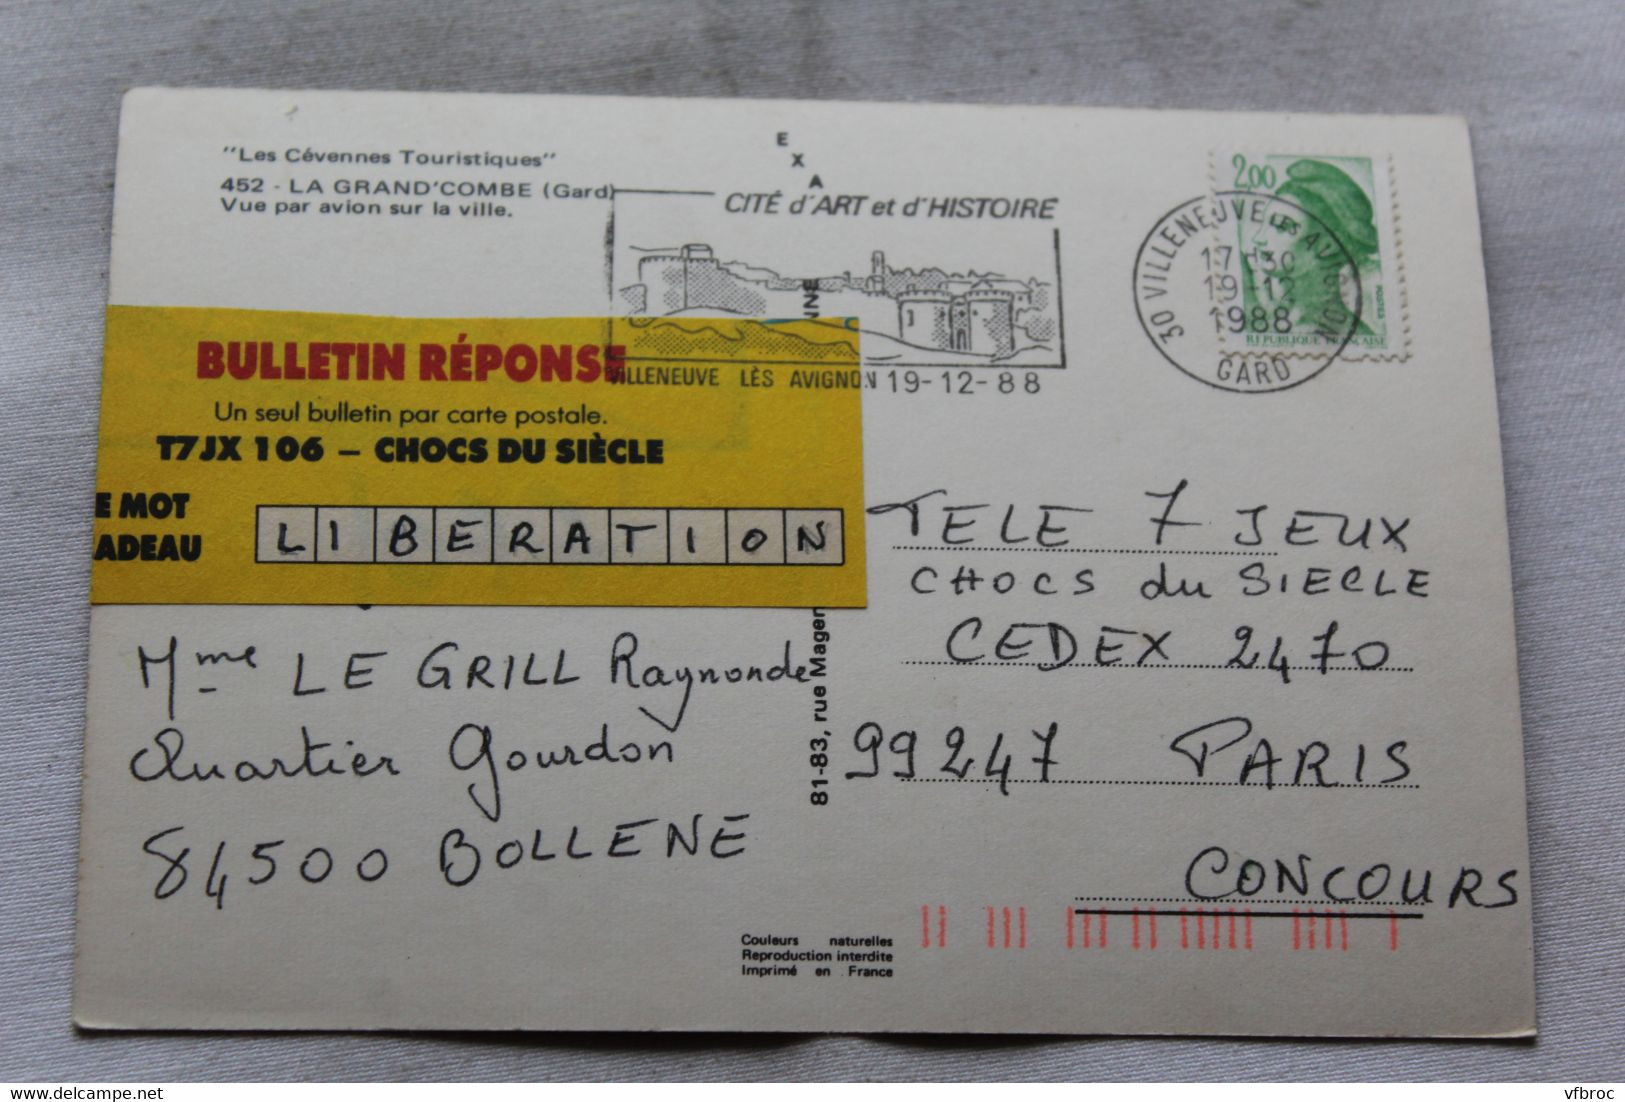 "Les Cévennes Touristiques"
452 - LA GRAND'COMBE (Gard)
Vue par avion sur la ville.
EXA
CITÉ d'ART et d'HISTOIRE
VILLENEUVE LÈS AVIGNON 19-12-88
2,00
POSTES
REPUBLIQUE FRANÇAISE
30 VILLENEUVE LES AVIGNON
17H30
19-12
1988
GARD
BULLETIN RÉPONSE
Un seul bulletin par carte postale.
T7JX 106 – CHOCS DU SIÈCLE
E MOT
ADEAU
LIBERATION
Mme LE GRILL Raymonde
Quartier Gourdon
84500 BOLLENE
NNE
81-83, rue Magen
TELE 7 JEUX
CHOCS du SIECLE
CEDEX 2470
99247 PARIS
CONCOURS
Couleurs naturelles
Reproduction interdite
Imprimé en France
delcampe.net
vfbroc